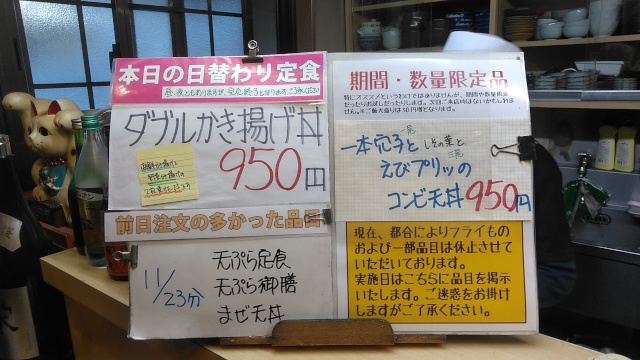 本日の日替わり定食
昼・夜ともありますが、完売終了となります。ご了承ください
ダブルかき揚げ丼
950円
海鮮かき揚げと
野菜かき揚げの
前日注文の多かった品目
11/23分
天ぷら定食
天ぷら御膳
まぜ天丼
期間・数量限定品
特にオススメというわけではありませんが、期間や数量限定
だったりお試しだったりします。次回ご来店時はないかもしれま
せん。ご飯大盛りは50円増となります。
一本穴子と
一尾
しその葉と
三尾
えびプリッの
コンビ天丼 950円
現在、都合によりフライもの
および一部品目は休止させて
いただいております。
実施日はこちらに品目を掲示
いたします。ご迷惑をお掛け
しますがご了承ください。